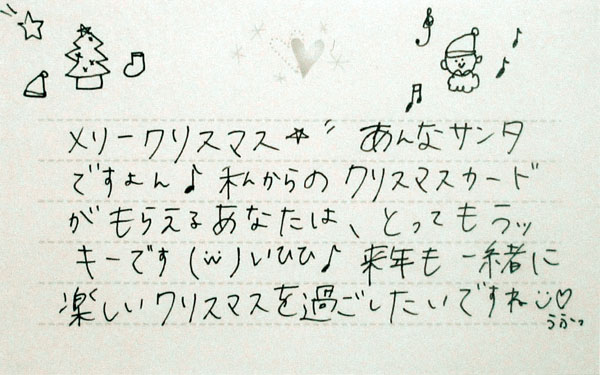 メリークリスマス☆ あんなサンタ
ですよん♪ 私からの クリスマスカード
がもらえるあなたは、とってもラッ
キーです(¨)いひひ♪ 来年も一緒に
楽しいクリスマスを過ごしたいですね♡
うふっ